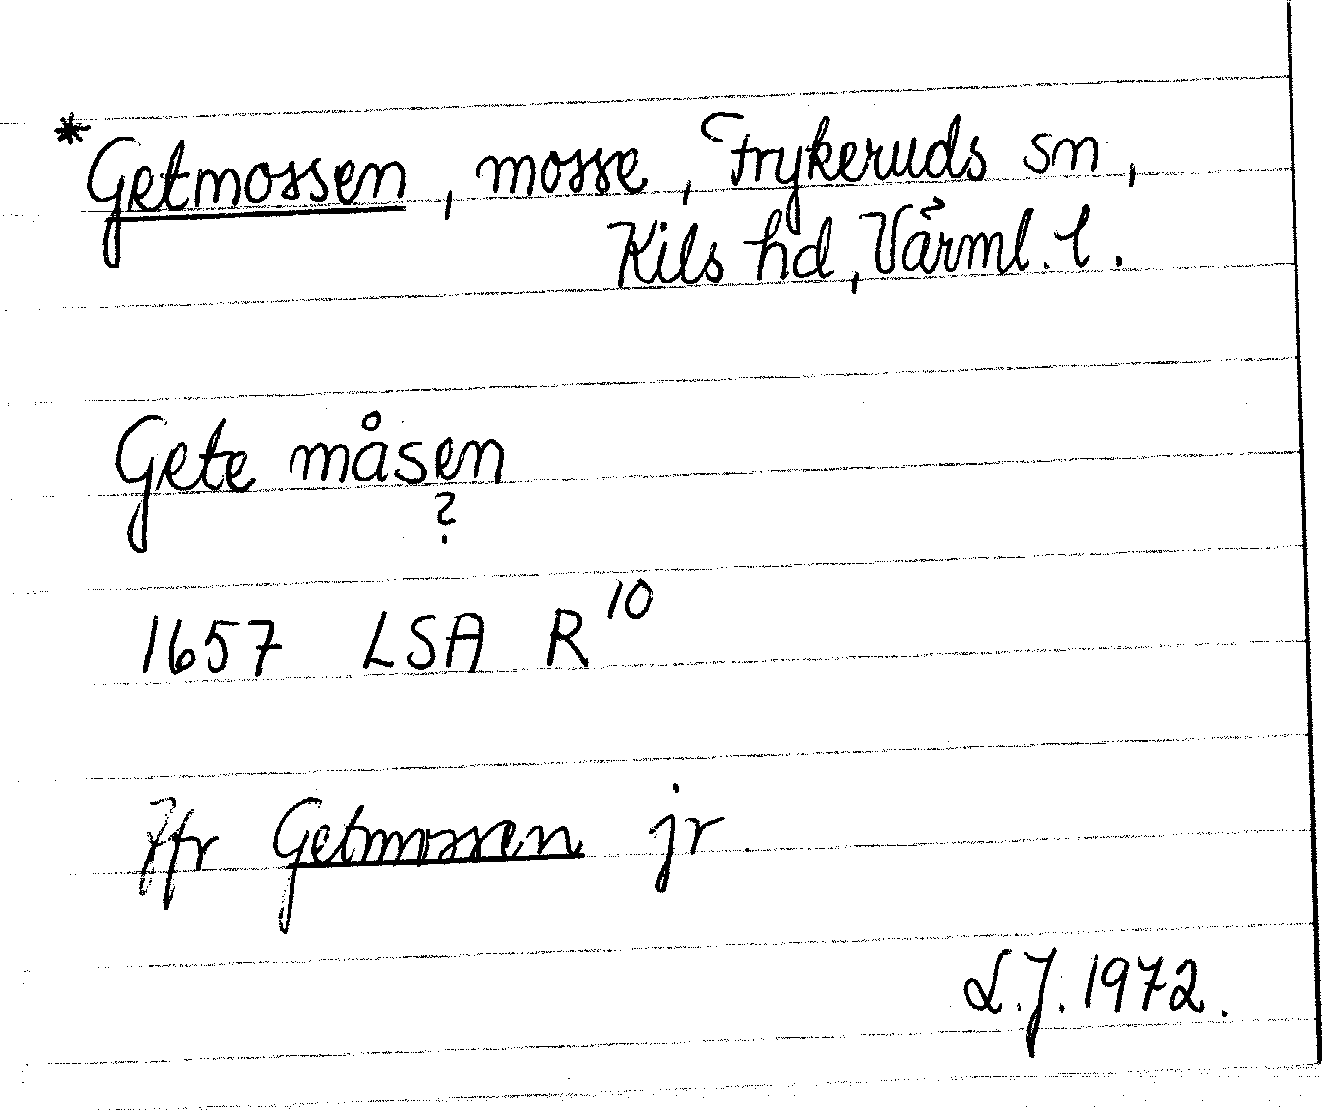 *Getmossen, mosse, Frykeruds sn,
Kils hd, Värml. l.
Gete måsen
?
1657 LSA R 10
Jfr Getmossen jr
L.J. 1972.